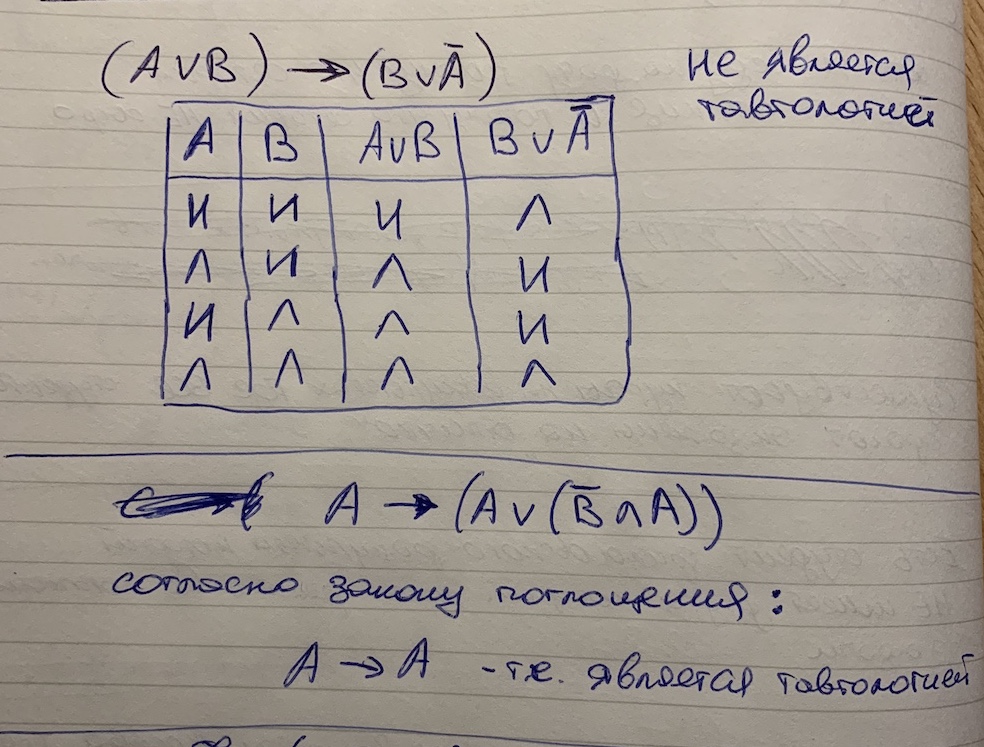 (A∨B) → (B∨Ā)
не является
тавтологией
A B A∨B B∨Ā
И И И Л
Л И Л И
И Л Л И
Л Л Л Л
A → (A∨(B̄∧A))
согласно закону поглощения:
A → A - т.е. является тавтологией